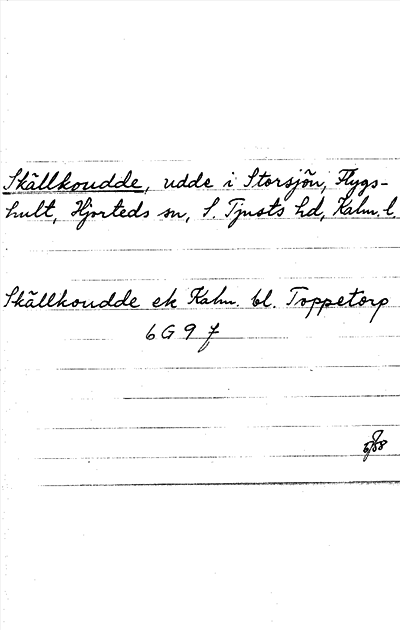 Skällkoudde, udde i Storsjön, Flygs-
hult, Hjorteds sn, S. Tjusts hd, Kalm. l.
Skällkoudde ek Kalm. bl. Toppetorp
6 G 9 f